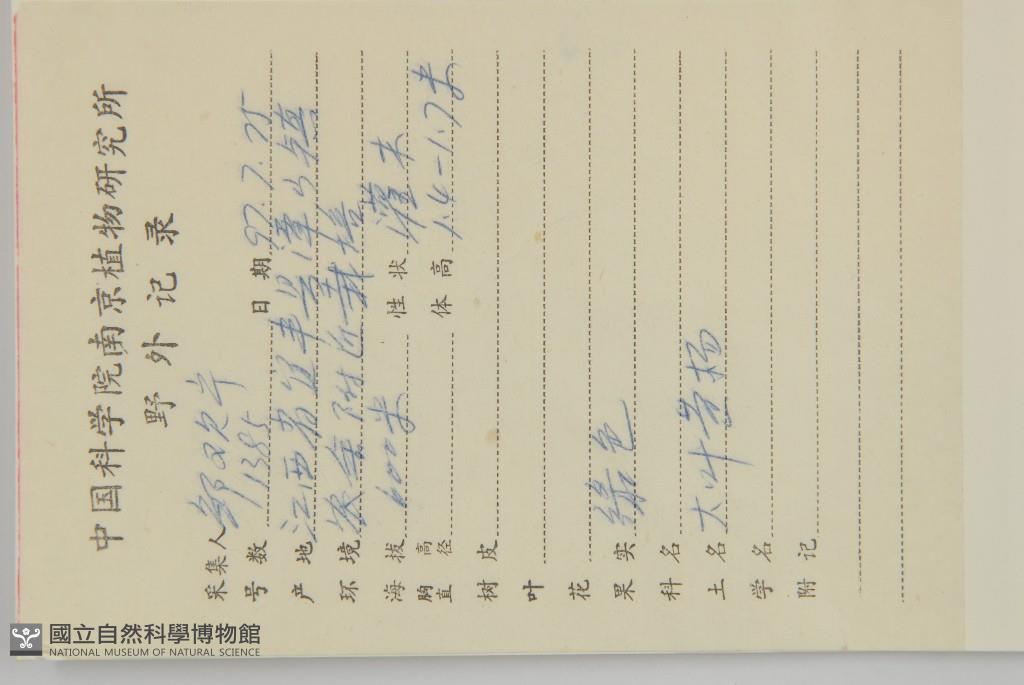 中国科学院南京植物研究所
野外记录
采集人
号数 1385 日期 97.7.25
产地 江西省宜丰县潭山镇
环境 附近栽培
海拔 600米 性状 灌木
胸高直径 体高 1.4-1.7米
树皮
叶
花
果实 绿色
科名
土名 大叶黄杨
学名
附记
國立自然科學博物館
NATIONAL MUSEUM OF NATURAL SCIENCE